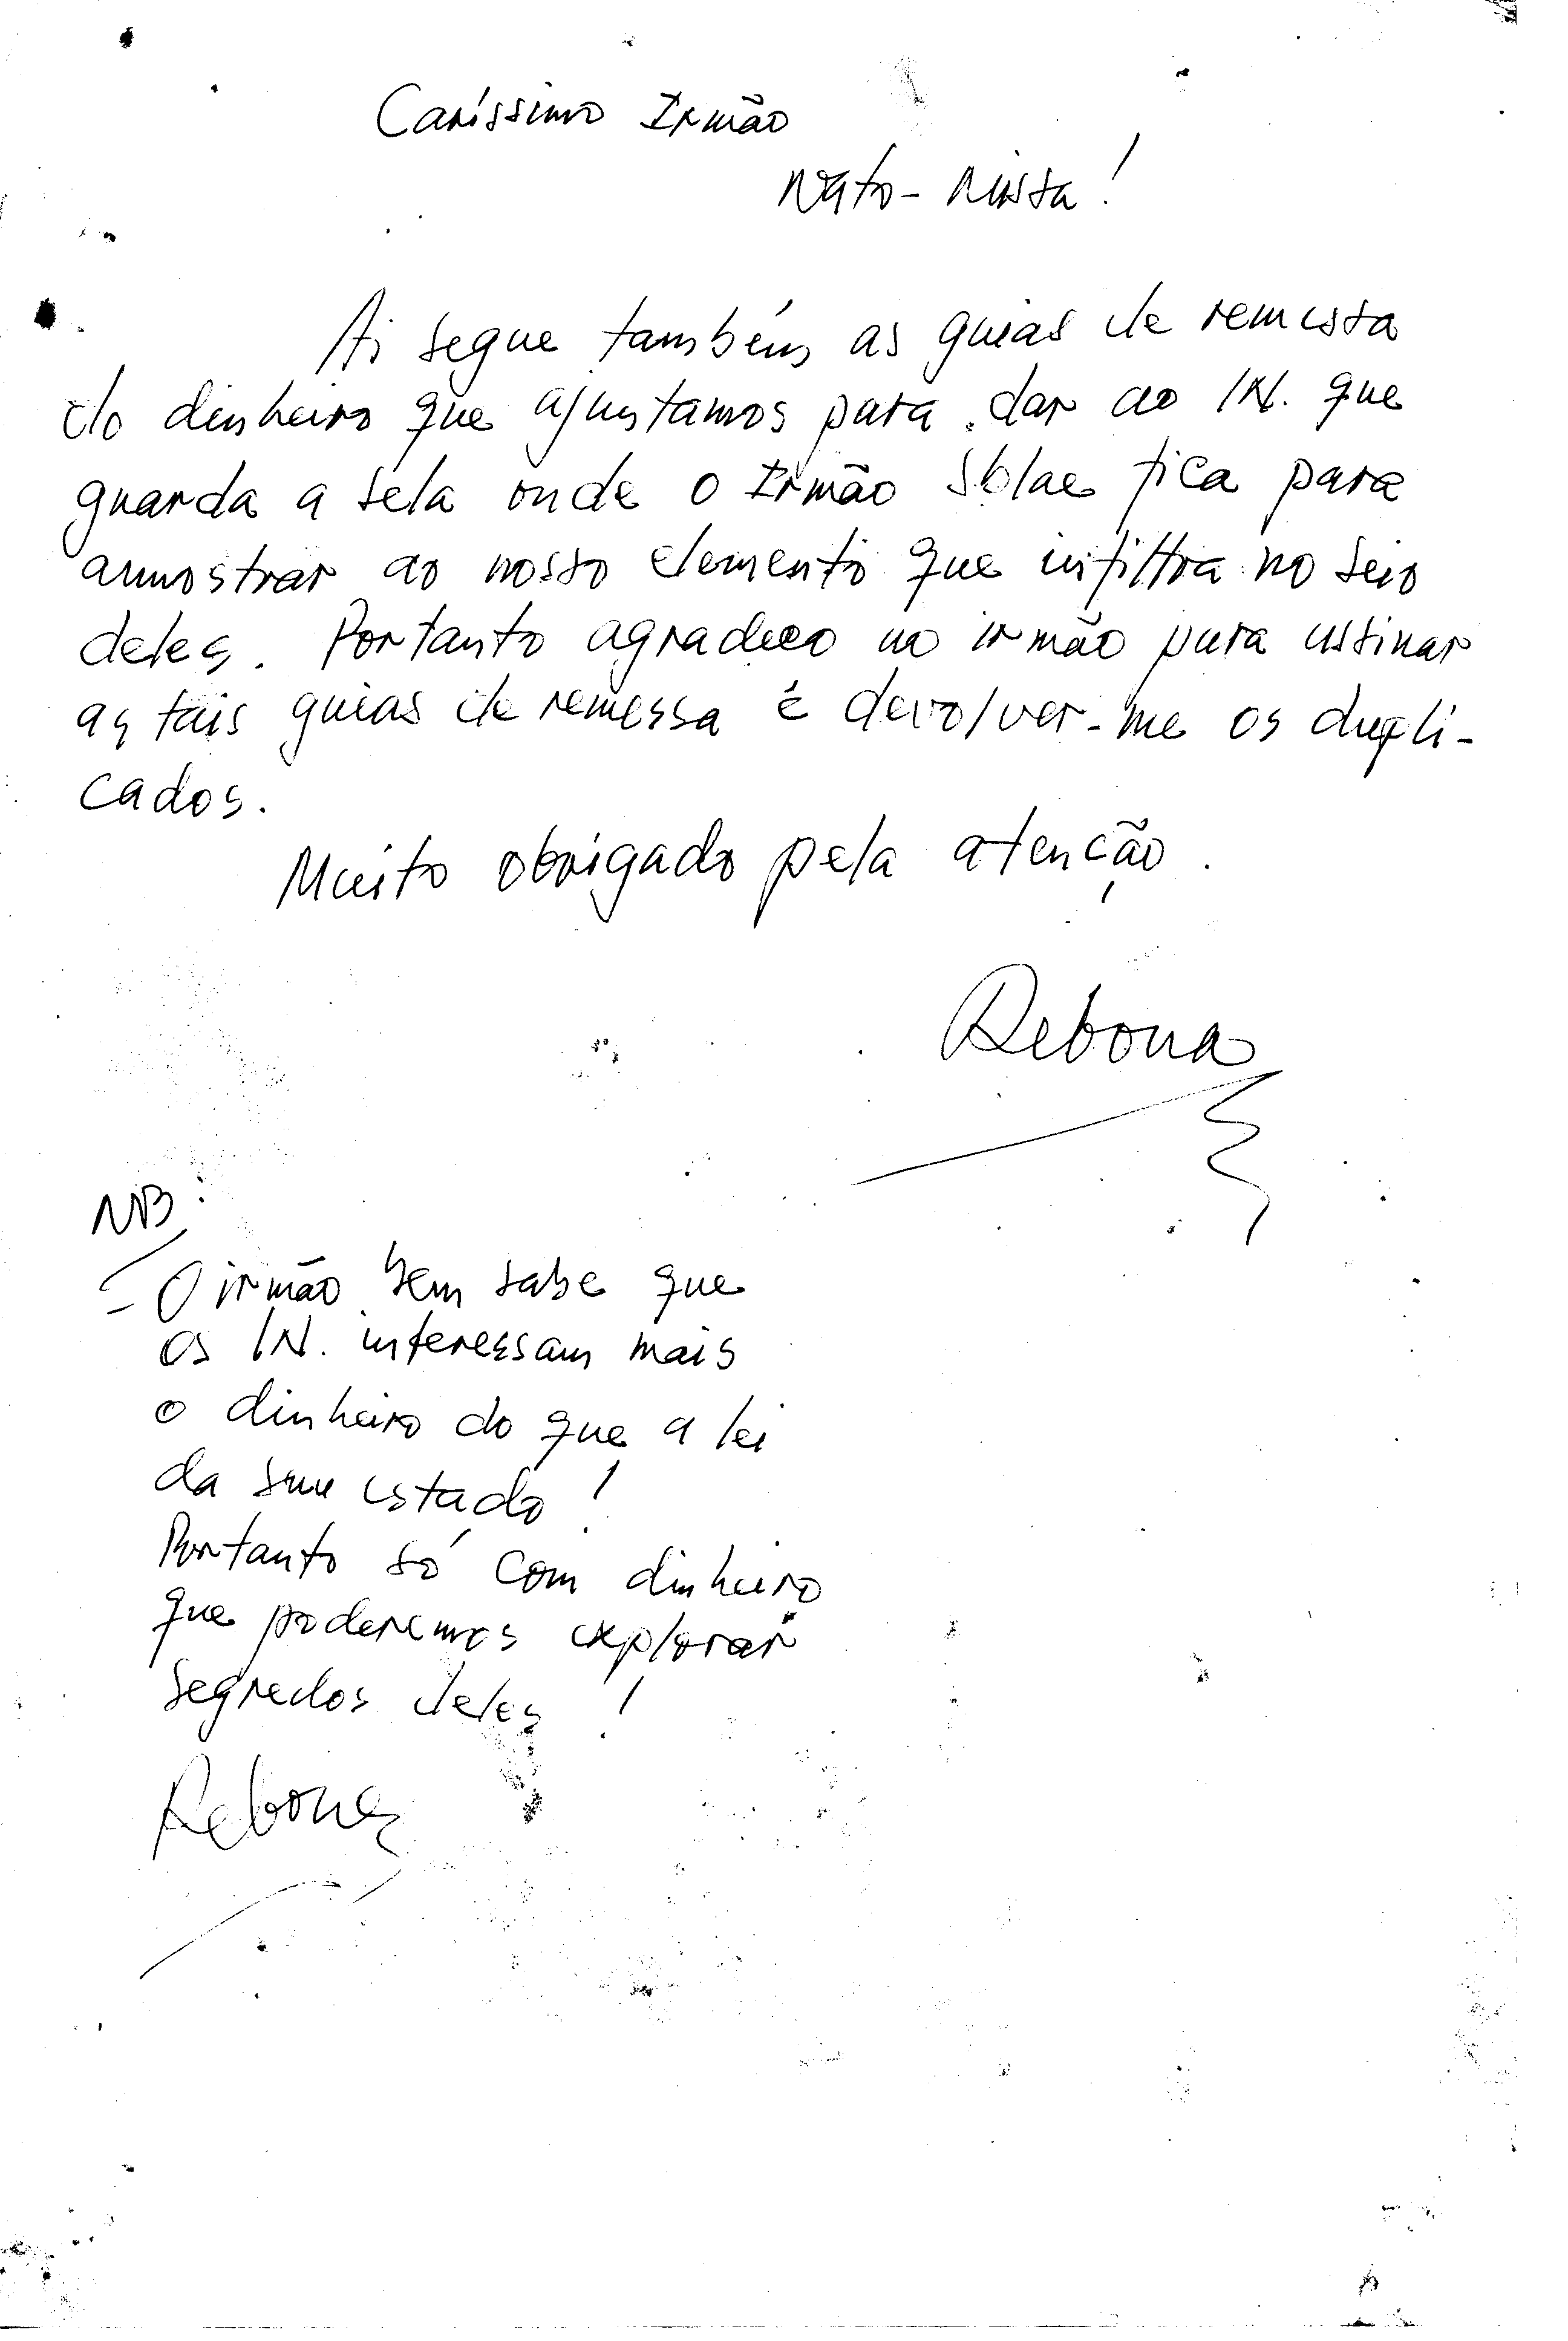 Caríssimo Irmão
Nato-Missa!
Ai segue também as guias de remessa
do dinheiro que ajustamos para dar ao IN. que
guarda a sela onde o Irmão Sblae fica para
amostrar ao nosso elemento que infiltra no seio
deles. Portanto agradeco ao irmão para assinar
as tais guias de remessa e devolver-me os dupli-
cados.
Muito obrigado pela atenção.
Rebona
NB:
- O irmão bem sabe que
os IN. interessam mais
o dinheiro do que a lei
da sua estado!
Portanto só com dinheiro
que poderemos explorar
segredos deles!
Rebona